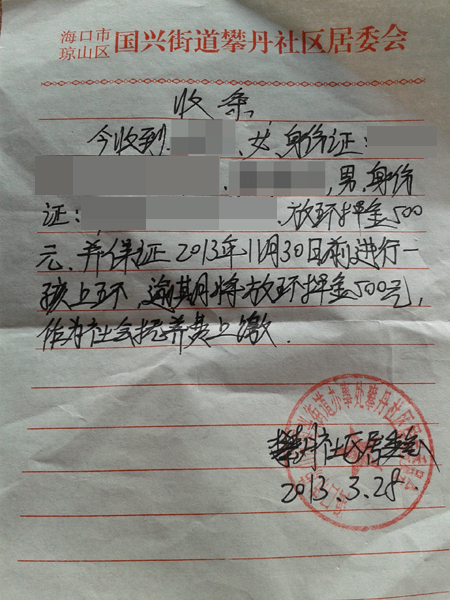 海口市
琼山区 国兴街道攀丹社区居委会
收条
今收到 、女、身份证:
、 ,男、身份
证: 、放环押金500
元、并保证2013年11月30日前进行一
孩上环、逾期将放环押金500元,
作为社会抚养费上缴.
攀丹社区居委会
2013.3.28.
街道办事处攀丹社区